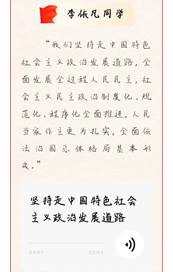 李依凡同学
“我们坚持走中国特色
社会主义政治发展道路，全
面发展全过程人民民主，社
会主义民主政治制度化、规
范化、程序化全面推进，人民
当家作主更为扎实，全面依
法治国总体格局基本形
成。”
坚持走中国特色社会
主义政治发展道路